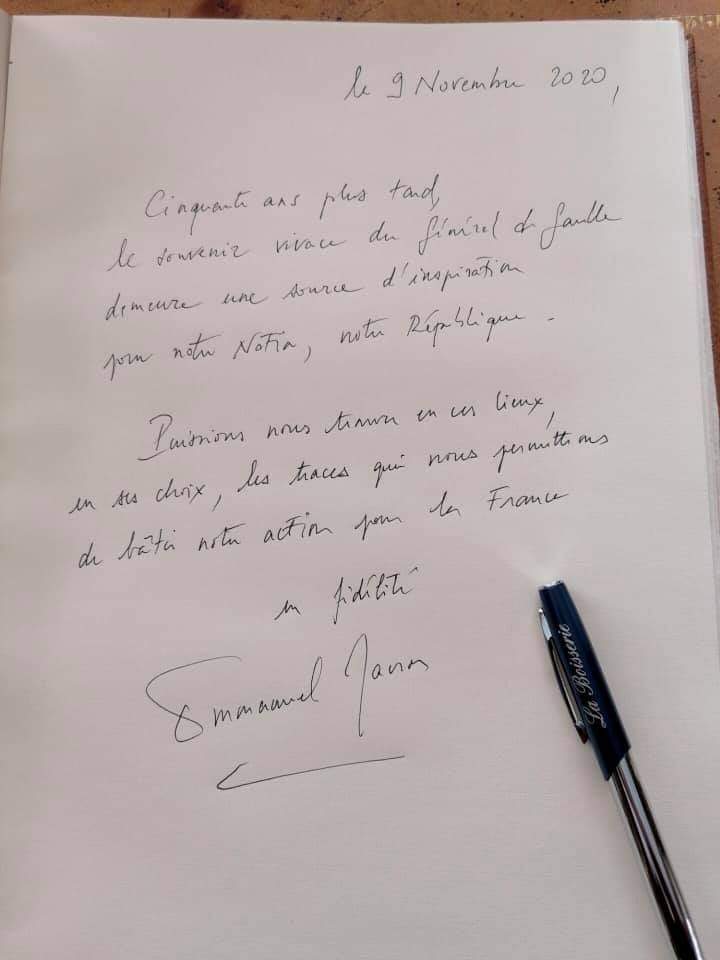 le 9 Novembre 2020,
Cinquante ans plus tard,
le souvenir vivace du Général de Gaulle
demeure une source d'inspiration
pour notre Nation, notre République.
Puissions nous trouver en ces lieux,
en ses choix, les traces qui nous permettrons
de bâtir notre action pour la France
en fidélité
Emmanuel Macron
La Boisserie